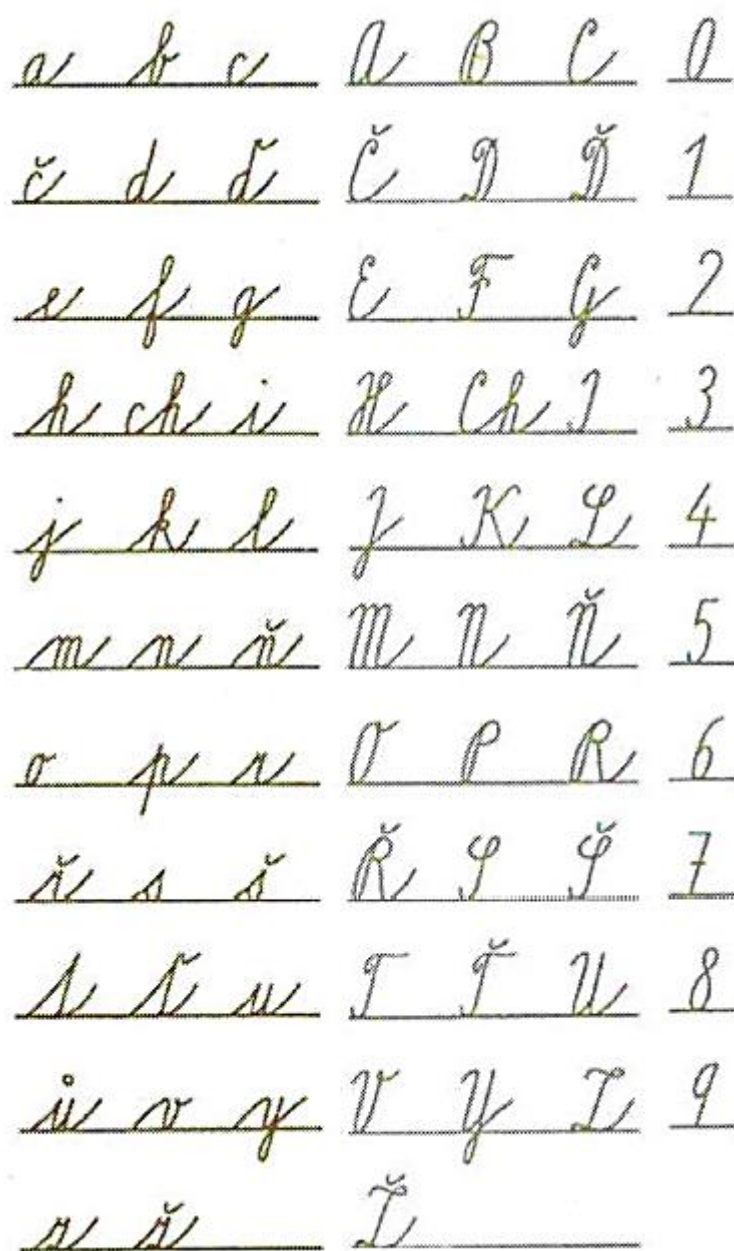 a b c A B C 0
č d ď Č D Ď 1
e f g E F G 2
h ch i H Ch I 3
j k l J K L 4
m n ň M N Ň 5
o p r O P R 6
ř s š Ř S Š 7
t ť u T Ť U 8
ů v y V Y Z 9
z ž Ž